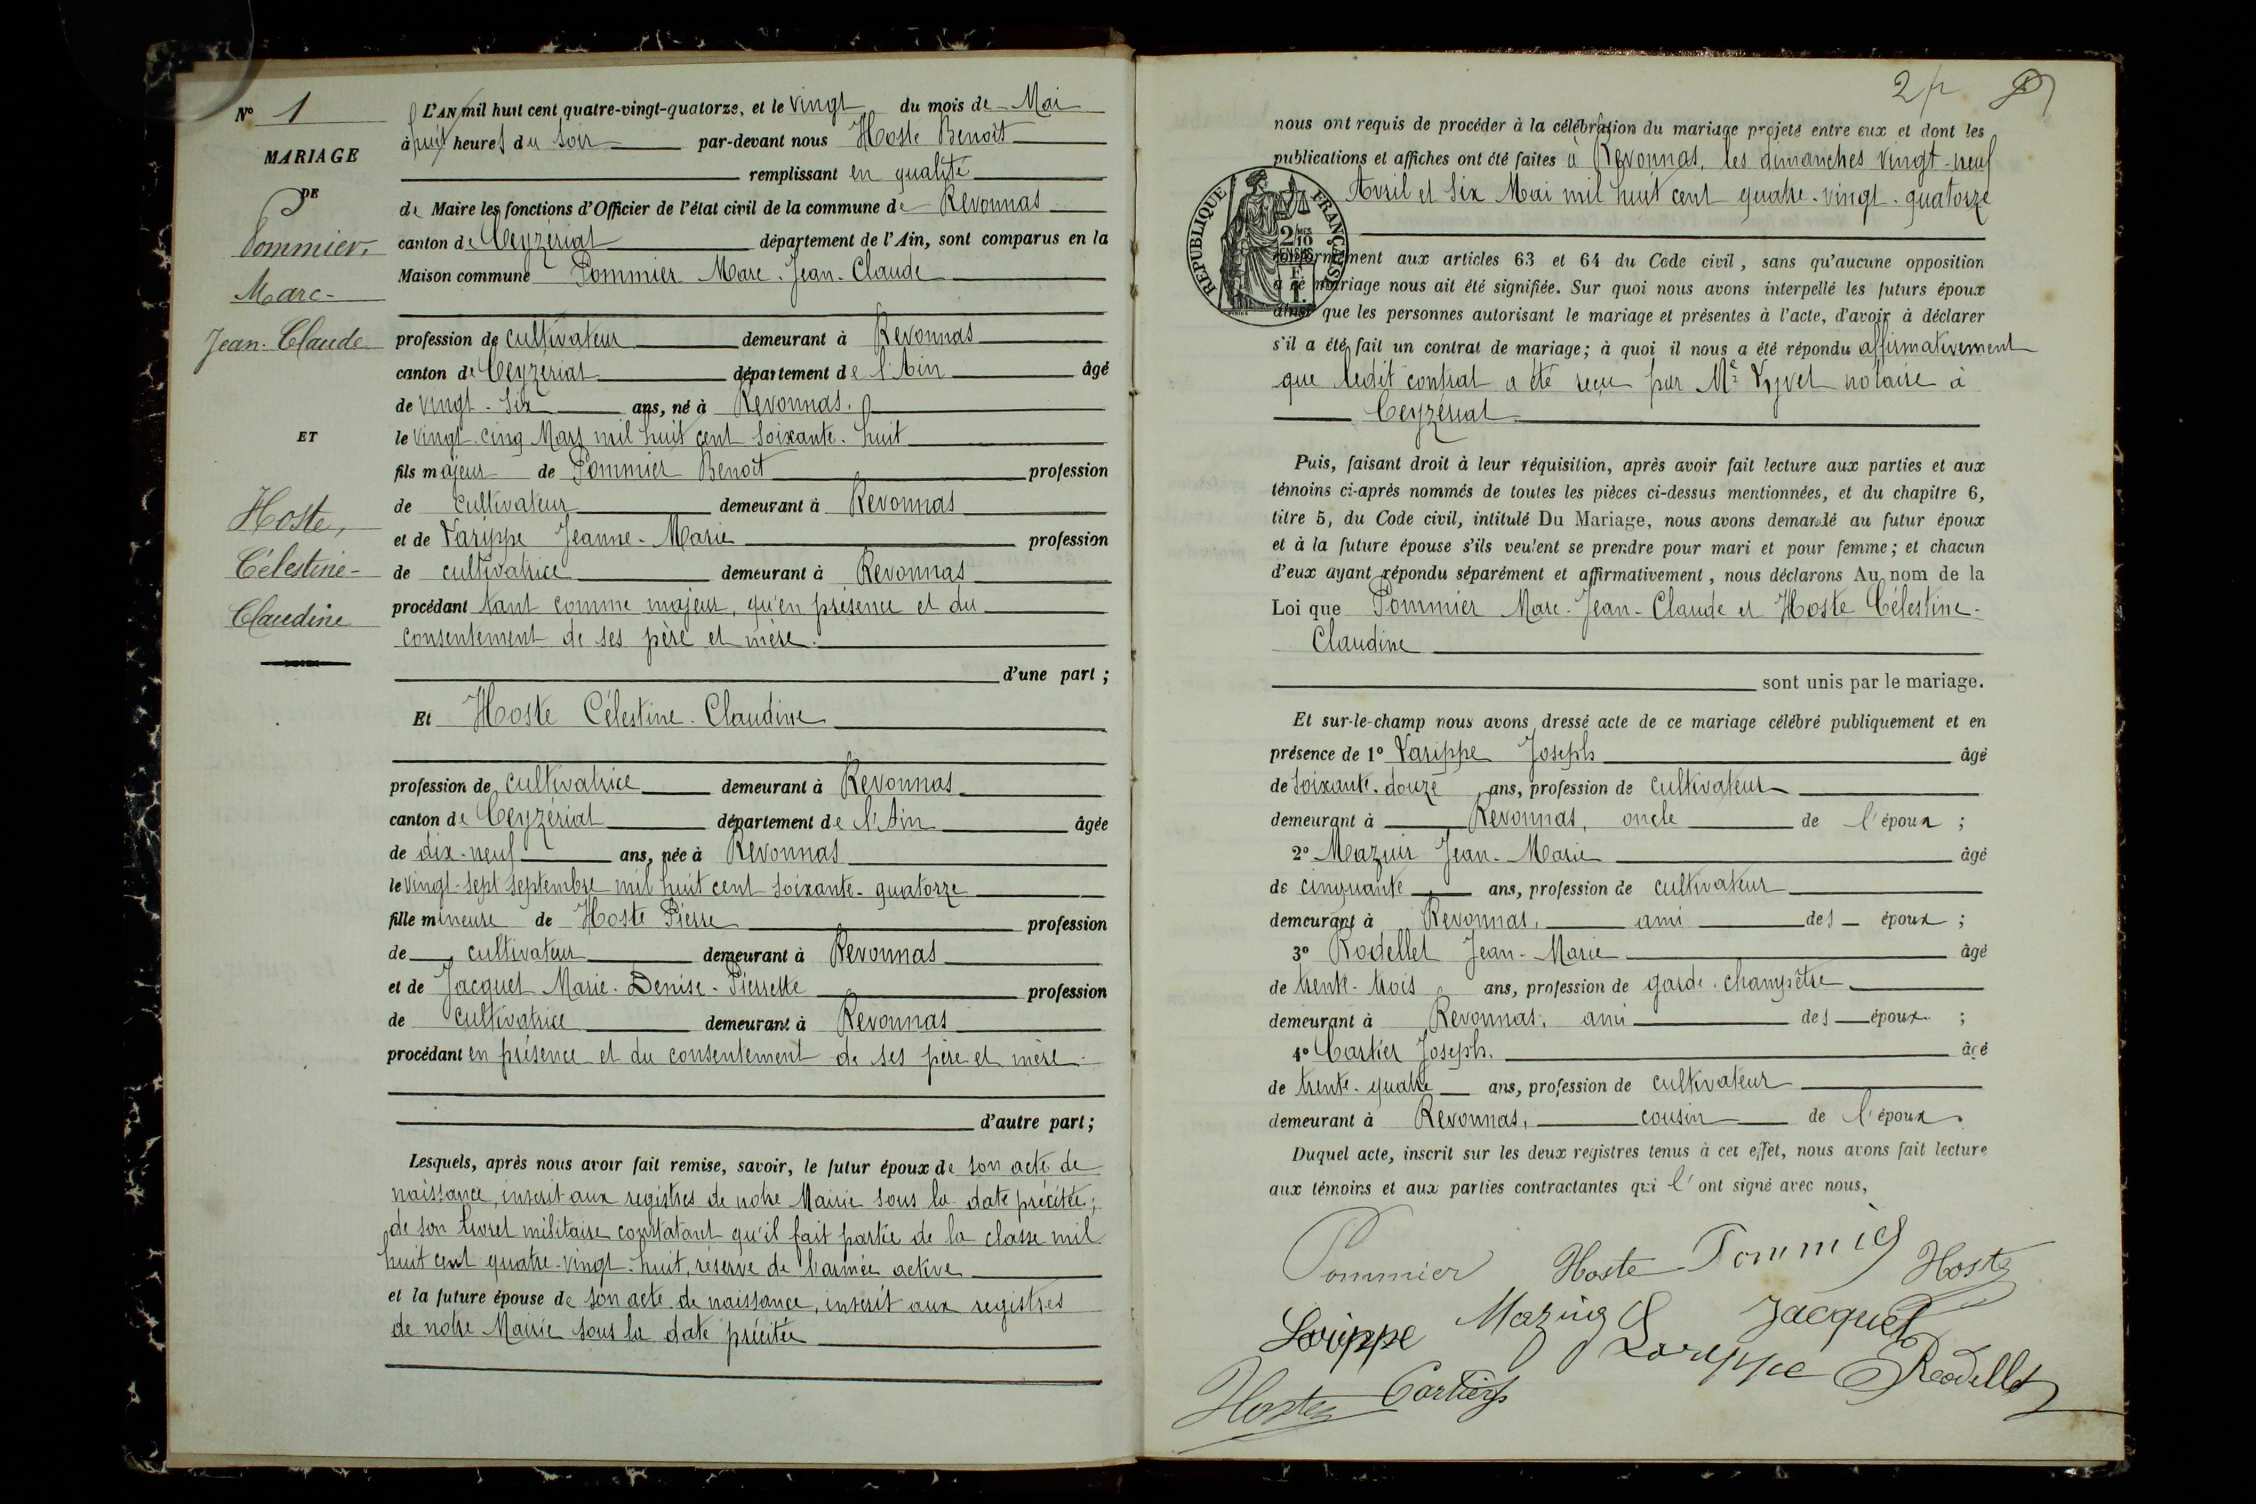 N° 1
MARIAGE
DE
Pommier,
Marc-
Jean-Claude
ET
Hoste,
Célestine-
Claudine
L'AN mil huit cent quatre-vingt-quatorze, et le vingt du mois de Mai
à huit heures du soir par-devant nous Hoste Benoît
remplissant en qualité
de Maire les fonctions d'Officier de l'état civil de la commune de Revonnas
canton de Ceyzériat département de l'Ain, sont comparus en la
Maison commune Pommier Marc-Jean-Claude
profession de cultivateur demeurant à Revonnas
canton de Ceyzériat département de l'Ain âgé
de vingt-six ans, né à Revonnas,
le vingt-cinq Mars mil huit cent soixante-huit
fils majeur de Pommier Benoît profession
de cultivateur demeurant à Revonnas
et de Varippe Jeanne-Marie profession
de cultivatrice demeurant à Revonnas
procédant tant comme majeur, qu'en présence et du
consentement de ses père et mère.
d'une part ;
Et Hoste Célestine-Claudine
profession de cultivatrice demeurant à Revonnas
canton de Ceyzériat département de l'Ain âgée
de dix-neuf ans, née à Revonnas
le vingt-sept septembre mil huit cent soixante-quatorze
fille mineure de Hoste Pierre profession
de cultivateur demeurant à Revonnas
et de Jacquet Marie-Denise-Pierrette profession
de cultivatrice demeurant à Revonnas
procédant en présence et du consentement de ses père et mère
d'autre part ;
Lesquels, après nous avoir fait remise, savoir, le futur époux de son acte de
naissance, inscrit aux registres de notre Mairie sous la date précitée ;
de son livret militaire constatant qu'il fait partie de la classe mil
huit cent quatre-vingt-huit, réserve de l'armée active
et la future épouse de son acte de naissance, inscrit aux registres
de notre Mairie sous la date précitée
2
nous ont requis de procéder à la célébration du mariage projeté entre eux et dont les
publications et affiches ont été faites à Revonnas, les dimanches vingt-neuf
Avril et six Mai mil huit cent quatre-vingt-quatorze
RÉPUBLIQUE FRANÇAISE
2/10 EN SUS
F. 1.
conformément aux articles 63 et 64 du Code civil, sans qu'aucune opposition
à ce mariage nous ait été signifiée. Sur quoi nous avons interpellé les futurs époux
ainsi que les personnes autorisant le mariage et présentes à l'acte, d'avoir à déclarer
s'il a été fait un contrat de mariage ; à quoi il nous a été répondu affirmativement
que ledit contrat a été reçu par Me notaire à
Ceyzériat
Puis, faisant droit à leur réquisition, après avoir fait lecture aux parties et aux
témoins ci-après nommés de toutes les pièces ci-dessus mentionnées, et du chapitre 6,
titre 5, du Code civil, intitulé Du Mariage, nous avons demandé au futur époux
et à la future épouse s'ils veulent se prendre pour mari et pour femme ; et chacun
d'eux ayant répondu séparément et affirmativement, nous déclarons Au nom de la
Loi que Pommier Marc-Jean-Claude et Hoste Célestine-
Claudine
sont unis par le mariage.
Et sur-le-champ nous avons dressé acte de ce mariage célébré publiquement et en
présence de 1° Varippe Joseph âgé
de soixante-douze ans, profession de cultivateur
demeurant à Revonnas, oncle de l'époux ;
2° Mazuir Jean-Marie âgé
de cinquante ans, profession de cultivateur
demeurant à Revonnas, ami des époux ;
3° Rodellet Jean-Marie âgé
de trente-trois ans, profession de garde-champêtre
demeurant à Revonnas, ami des époux ;
4° Cartier Joseph. âgé
de trente-quatre ans, profession de cultivateur
demeurant à Revonnas, cousin de l'époux.
Duquel acte, inscrit sur les deux registres tenus à cet effet, nous avons fait lecture
aux témoins et aux parties contractantes qui l'ont signé avec nous,
Pommier Hoste Pommier Hoste
Mazuir Jacquet
Rodellet
Hoste Cartier